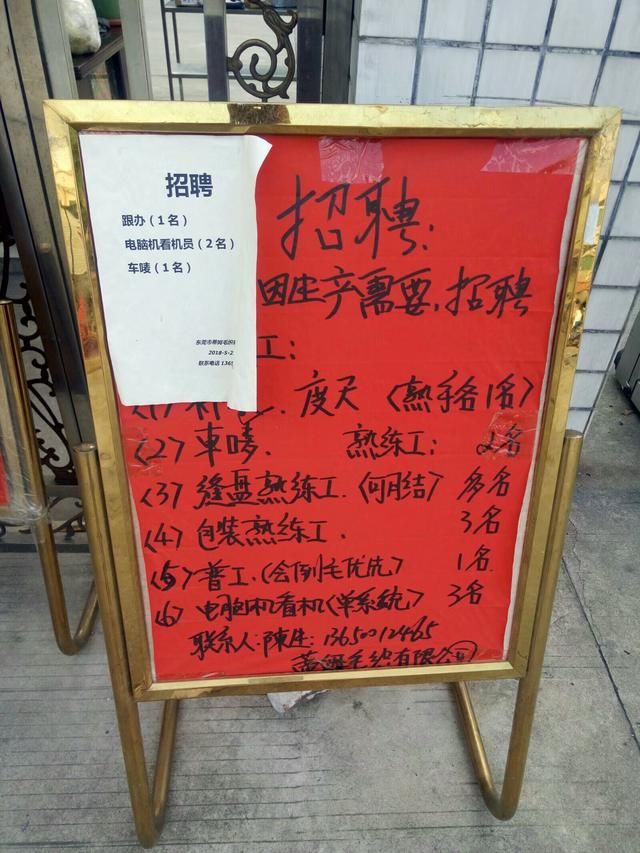 招聘
跟办（1名）
电脑机看机员（2名）
车唛（1名）
2018-5-2
联系电话 1365
招聘:
因生产需要,招聘
工:
度尺 （熟手各1名）
（2）车唛. 熟练工: 2名
（3）缝盘熟练工.（可月结） 多名
（4）包装熟练工. 3名
（5）普工.（会倒毛优先） 1名
（6）电脑机看机（单系统） 3名
联系人:陳生: 13650012465
毛织有限公司